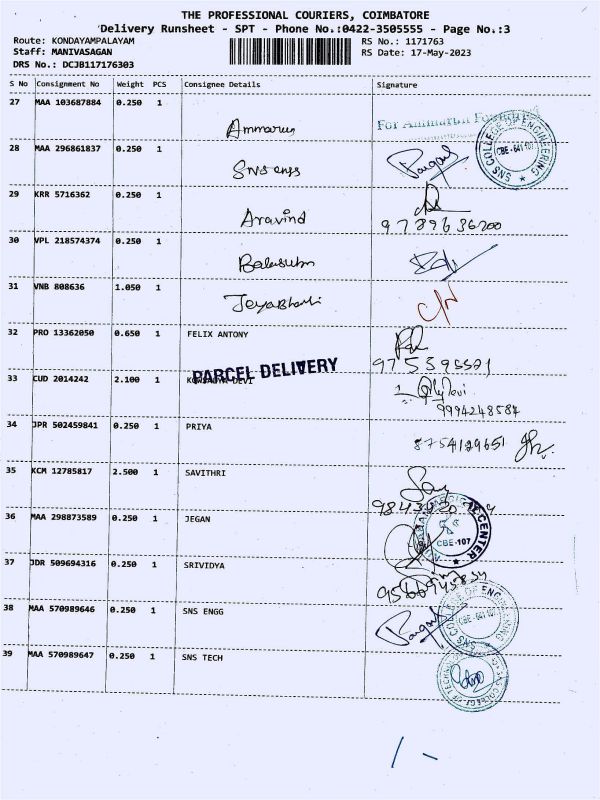 THE PROFESSIONAL COURIERS, COIMBATORE
Delivery Runsheet - SPT - Phone No.:0422-3505555 - Page No.:3
Route: KONDAYAMPALAYAM RS No.: 1171763
Staff: MANIVASAGAN RS Date: 17-May-2023
DRS No.: DCJB117176303
S No Consignment No Weight PCS Consignee Details Signature
27 MAA 103687884 0.250 1
Ammarun For Ammarun
28 MAA 296861837 0.250 1
SNS engg
SNS COLLEGE OF ENGINEERING
CBE-641 107
29 KRR 5716362 0.250 1
Aravind
9789636200
30 VPL 218574374 0.250 1
Balasubm
31 VNB 808636 1.050 1
Jeyabharti C/N
32 PRO 13362050 0.650 1 FELIX ANTONY
PARCEL DELIVERY
33 CUD 2014242 2.100 1 DEVI
9994248584
34 JPR 502459841 0.250 1 PRIYA
8754129651
35 KCM 12785817 2.500 1 SAVITHRI
36 MAA 298873589 0.250 1 JEGAN
CENTER
CBE-107
37 JDR 509694316 0.250 1 SRIVIDYA
38 MAA 570989646 0.250 1 SNS ENGG
SNS COLLEGE OF ENGG
CBE-641 107
39 MAA 570989647 0.250 1 SNS TECH